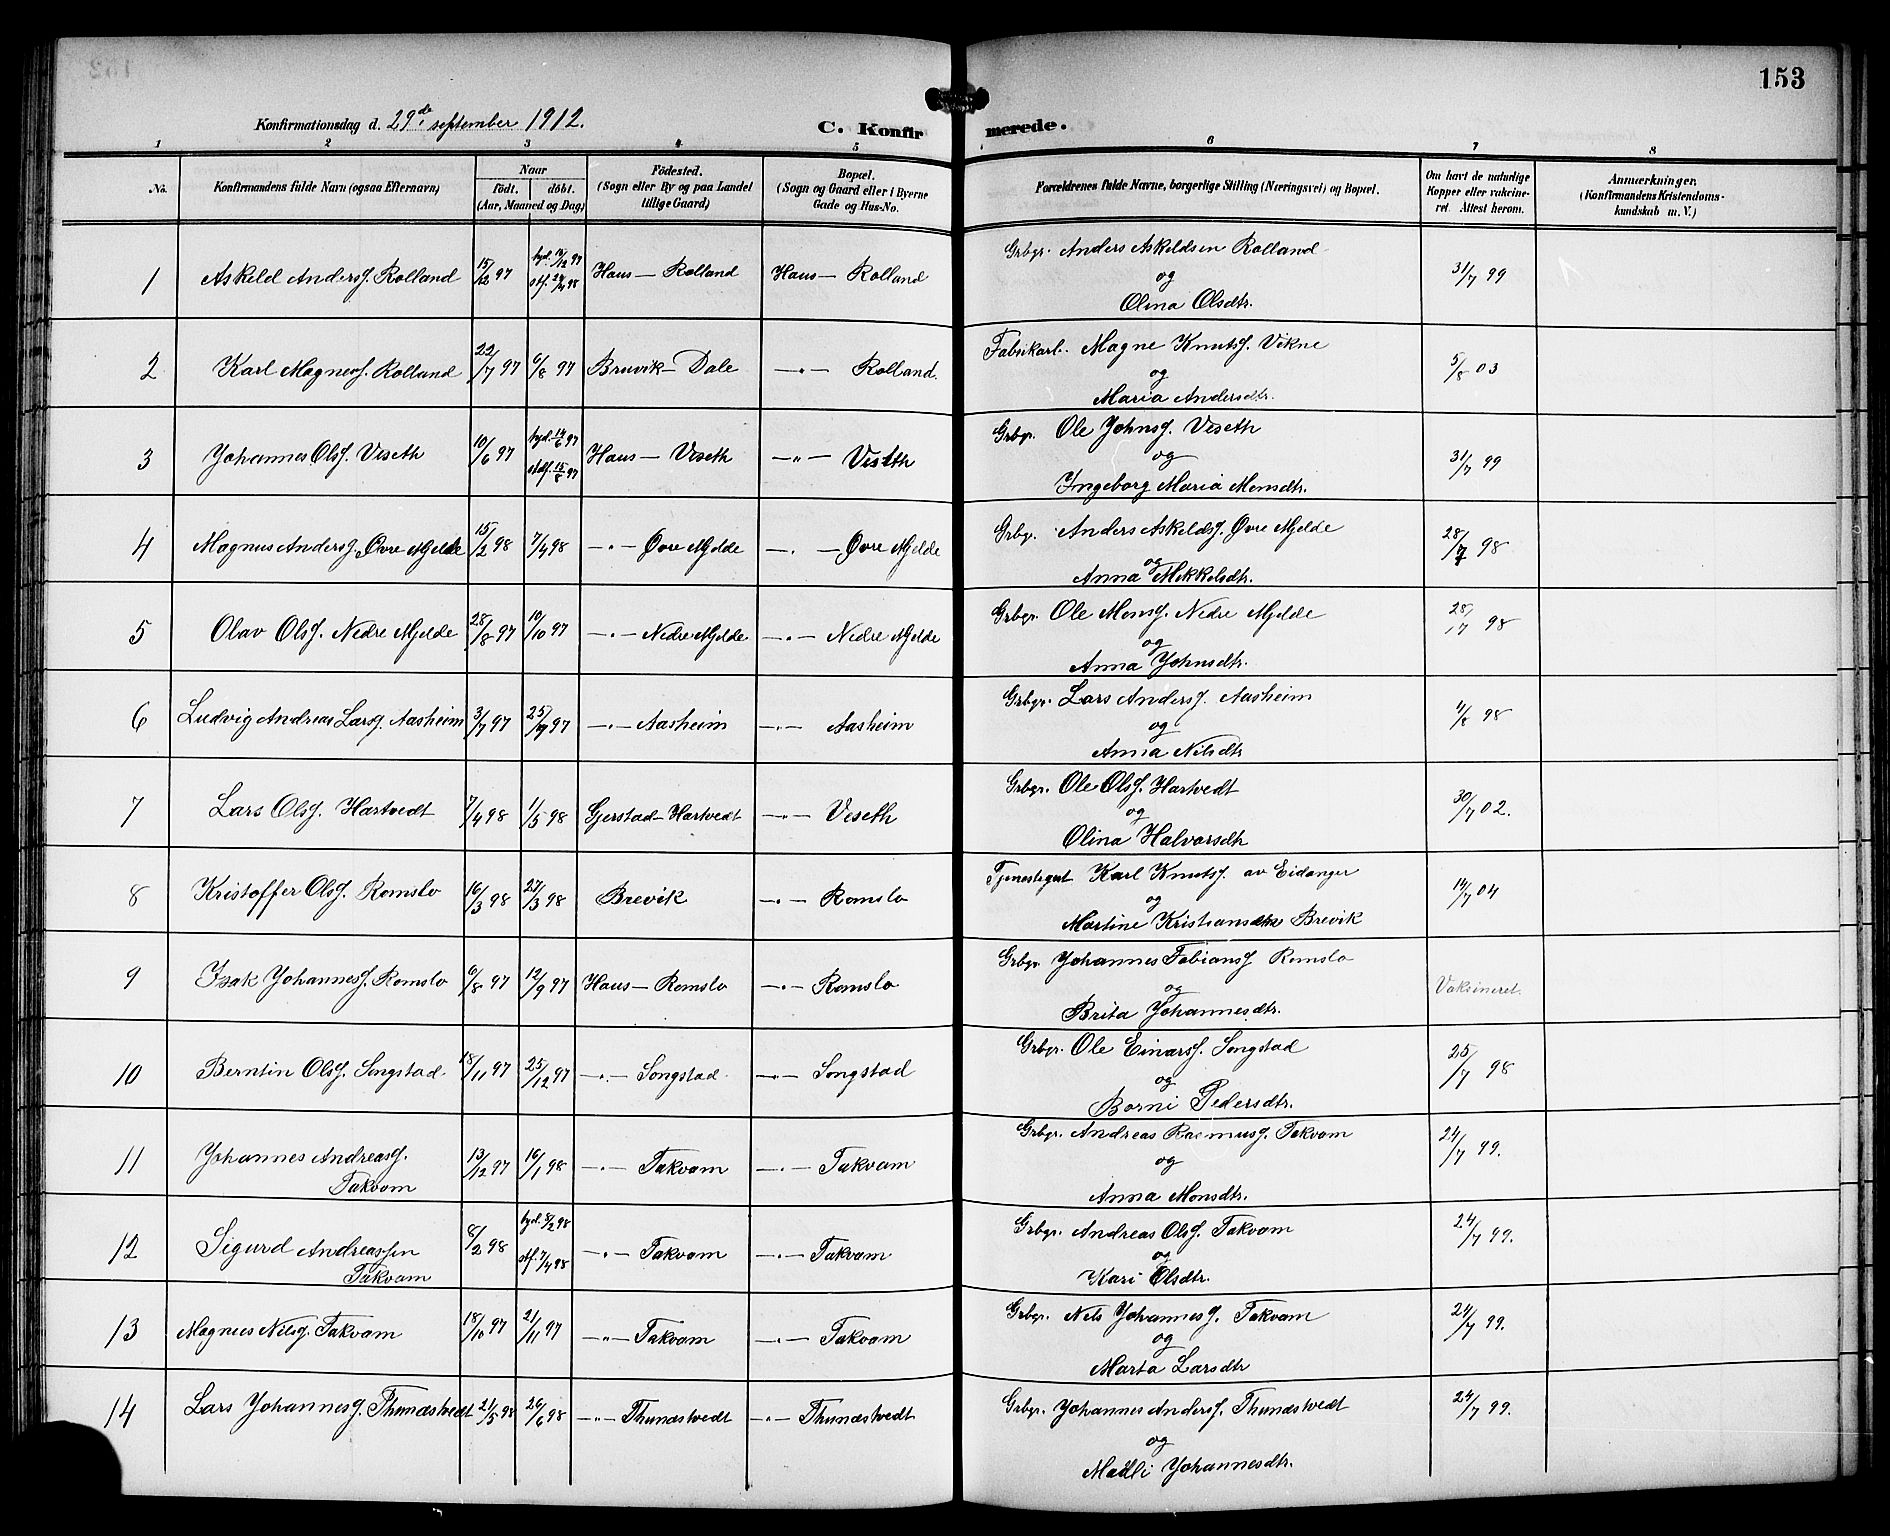 153
Konfirmationsdag d. 29de september 1912.
C. Konfirmerede.
1 2 3 4 5 6 7 8
No.
Konfirmandens fulde Navn (ogsaa Efternavn)
Naar
födt. döbt.
(Aar, Maaned og Dag)
Födested.
(Sogn eller By og paa Landet
tillige Gaard)
Bopæl.
(Sogn og Gaard eller i Byerne
Gade og Hus-No.
Forældrenes fulde Navne, borgerlige Stilling (Næringsvei) og Bopæl.
Om havt de naturlige
Kopper eller vakcine-
ret. Attest herom.
Anmærkninger,
(Konfirmandens Kristendoms-
kundskab m. V.)
1 Askeld Andersf. Rolland 15/12 97 hjd. 19/12 97 Haus — Rolland Haus — Rolland Grbgr. Anders Askeldsen Rolland 31/7 99
stf. 24/4 98 og
Olina Olsdtr.
2 Karl Magnesf. Rolland 22/7 97 6/8 97 Bruvik — Dale —"— Rolland. Fabrikarb. Magne Knutsf. Vikne 5/8 03
og
Maria Andersdtr.
3 Johannes Olsf. Veseth 10/6 97 hjd. 14/6 97 Haus — Veseth —"— Veseth Grbgr. Ole Johnsf. Veseth 31/7 99
stdf. 15/8 97 og
Ingeborg Maria Monsdtr.
4 Magnus Andersf. Øvre Mjelde 15/2 98 7/4 98 —"— Øvre Mjelde —"— Øvre Mjelde Grbgr. Anders Askeldsf. Øvre Mjelde 28/7 98
og
Anna Mikkelsdtr.
5 Olav Olsf. Nedre Mjelde 28/8 97 10/10 97 —"— Nedre Mjelde —"— Nedre Mjelde Grbgr. Ole Monsf. Nedre Mjelde 28/7 98
og
Anna Johnsdtr.
6 Ludvig Andreas Larsf. Aasheim 3/7 97 25/7 97 —"— Aasheim —"— Aasheim Grbgr. Lars Andersf. Aasheim 4/8 98
og
Anna Nilsdtr
7 Lars Olsf. Hartvedt 7/4 98 1/5 98 Gjerstad — Hartvedt —"— Veseth Grbgr. Ole Olsf. Hartvedt 30/7 02.
og
Olina Halvorsdtr
8 Kristoffer Olsf. Romslo 16/3 98 27/3 98 Brevik —"— Romslo Tjenestegut Karl Knutsf. av Eidanger 14/7 04
og
Martine Kristiansdtr Brevik
9 Isak Johannesf. Romslo 6/8 97 12/9 97 Haus — Romslo —"— Romslo Grbgr. Johannes Fabiansf Romslo Vaksineret.
og
Brita Johannesdtr.
10 Berntin Olsf. Songstad. 18/11 97 25/12 97 —"— Songstad. —"— Songstad Grbgr. Ole Einarsf. Songstad 25/7 98
og
Borni Pedersdtr.
11 Johannes Andreasf. 13/12 97 16/1 98 —"— Takvam —"— Takvam Grbgr. Andreas Rasmusf. Takvam 24/7 99.
Takvam og
Anna Monsdtr.
12 Sigurd Andreassen 8/2 98 hjd. 8/2 98 —"— Takvam —"— Takvam Grbgr. Andreas Olsf. Takvam 24/7 99.
Takvam stf. 7/4 98 og
Kari Olsdtr.
13 Magnus Nilsf. Takvam 18/10 97 21/11 97 —"— Takvam —"— Takvam Grbgr. Nils Johannesf. Takvam 24/7 99.
og
Marta Larsdtr
14 Lars Johannesf. Thunæstvedt 21/5 98 26/6 98 —"— Thunæstvedt —"— Thunæstvedt Grbgr. Johannes Andersf. Thunæstvedt 24/7 99.
og
Madli Johannesdtr.